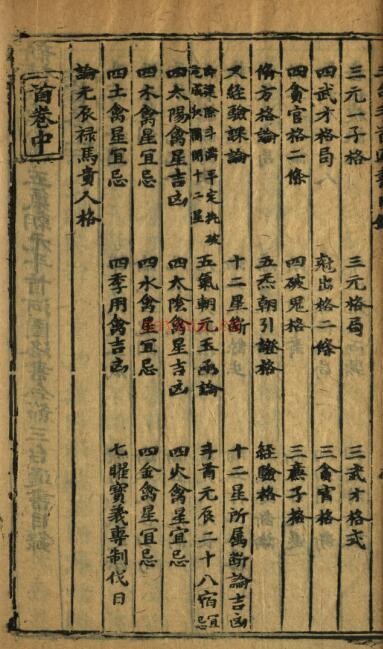 三元一子格 三元格局 三武才格式
四武才格局 剋出格二條 三貪官格
四貪官格二條 四破鬼格 三廉子格
脩方格論 五炁朝引證格 經驗格
又経驗課論 十二星断 十二星所属断論吉凶
即建除斗满平定执破
危成收開閉十二星 五氣朝元玉函論 斗首元辰二十八宿忌宜
四太陽禽星吉凶 四太陰禽星吉凶 四火禽星宜忌
四木禽星宜忌 四水禽星宜忌 四金禽星宜忌
四土禽星宜忌 四季用禽吉凶 七曜寶義專制伐日
論元辰禄馬貴人格
首卷中